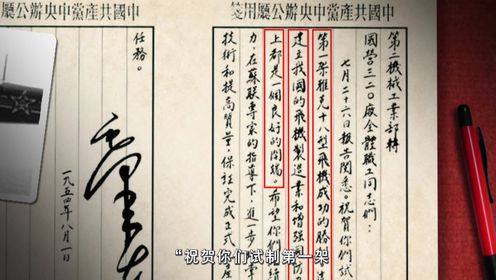 中國共產黨中央辦公廳用箋
第二機械工業部轉
國營三二〇廠全體職工同志們：
七月二十六日報告閱悉。祝賀你們試
第一架雅克十八型飛機成功的勝
建立我國的飛機製造業和增強國防
上都是一個良好的開端。希望你們
力，在蘇聯專家的指導下，進一步
技術和提高質量，保証完成正式
中國共產黨中央辦公廳用箋
任務。
一九五四年八月一日
“祝贺你们试制第一架